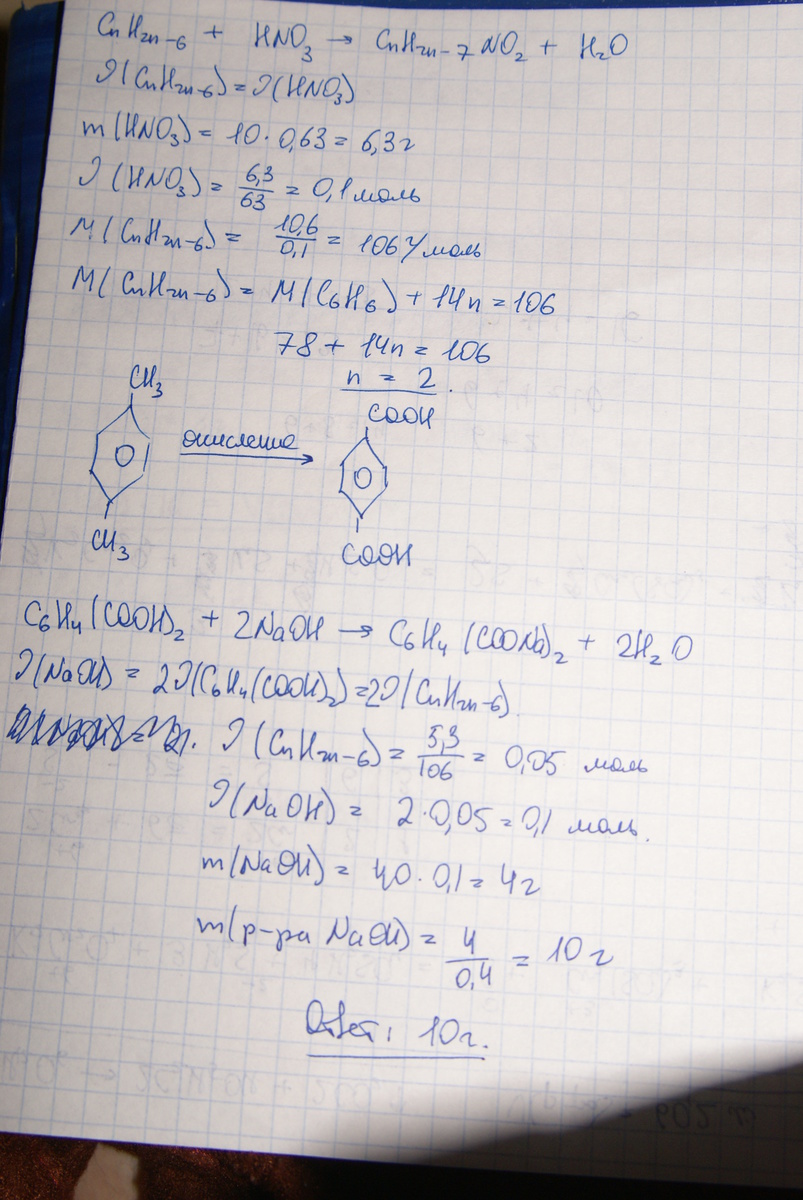 CnH2n-6 + HNO3 → CnH2n-7NO2 + H2O
ν(CnH2n-6) = ν(HNO3)
m(HNO3) = 10·0,63 = 6,3г
ν(HNO3) = 6,3/63 = 0,1 моль
M(CnH2n-6) = 10,6/0,1 = 106 г/моль
M(CnH2n-6) = M(C6H6) + 14n = 106
78 + 14n = 106
n = 2.
CH3
COOH
окисление
CH3
COOH
C6H4(COOH)2 + 2NaOH → C6H4(COONa)2 + 2H2O
ν(NaOH) = 2ν(C6H4(COOH)2) = 2ν(CnH2n-6)
ν(CnH2n-6) = 5,3/106 = 0,05 моль
ν(NaOH) = 2·0,05 = 0,1 моль.
m(NaOH) = 40·0,1 = 4г
m(р-ра NaOH) = 4/0,4 = 10г
Ответ: 10г.